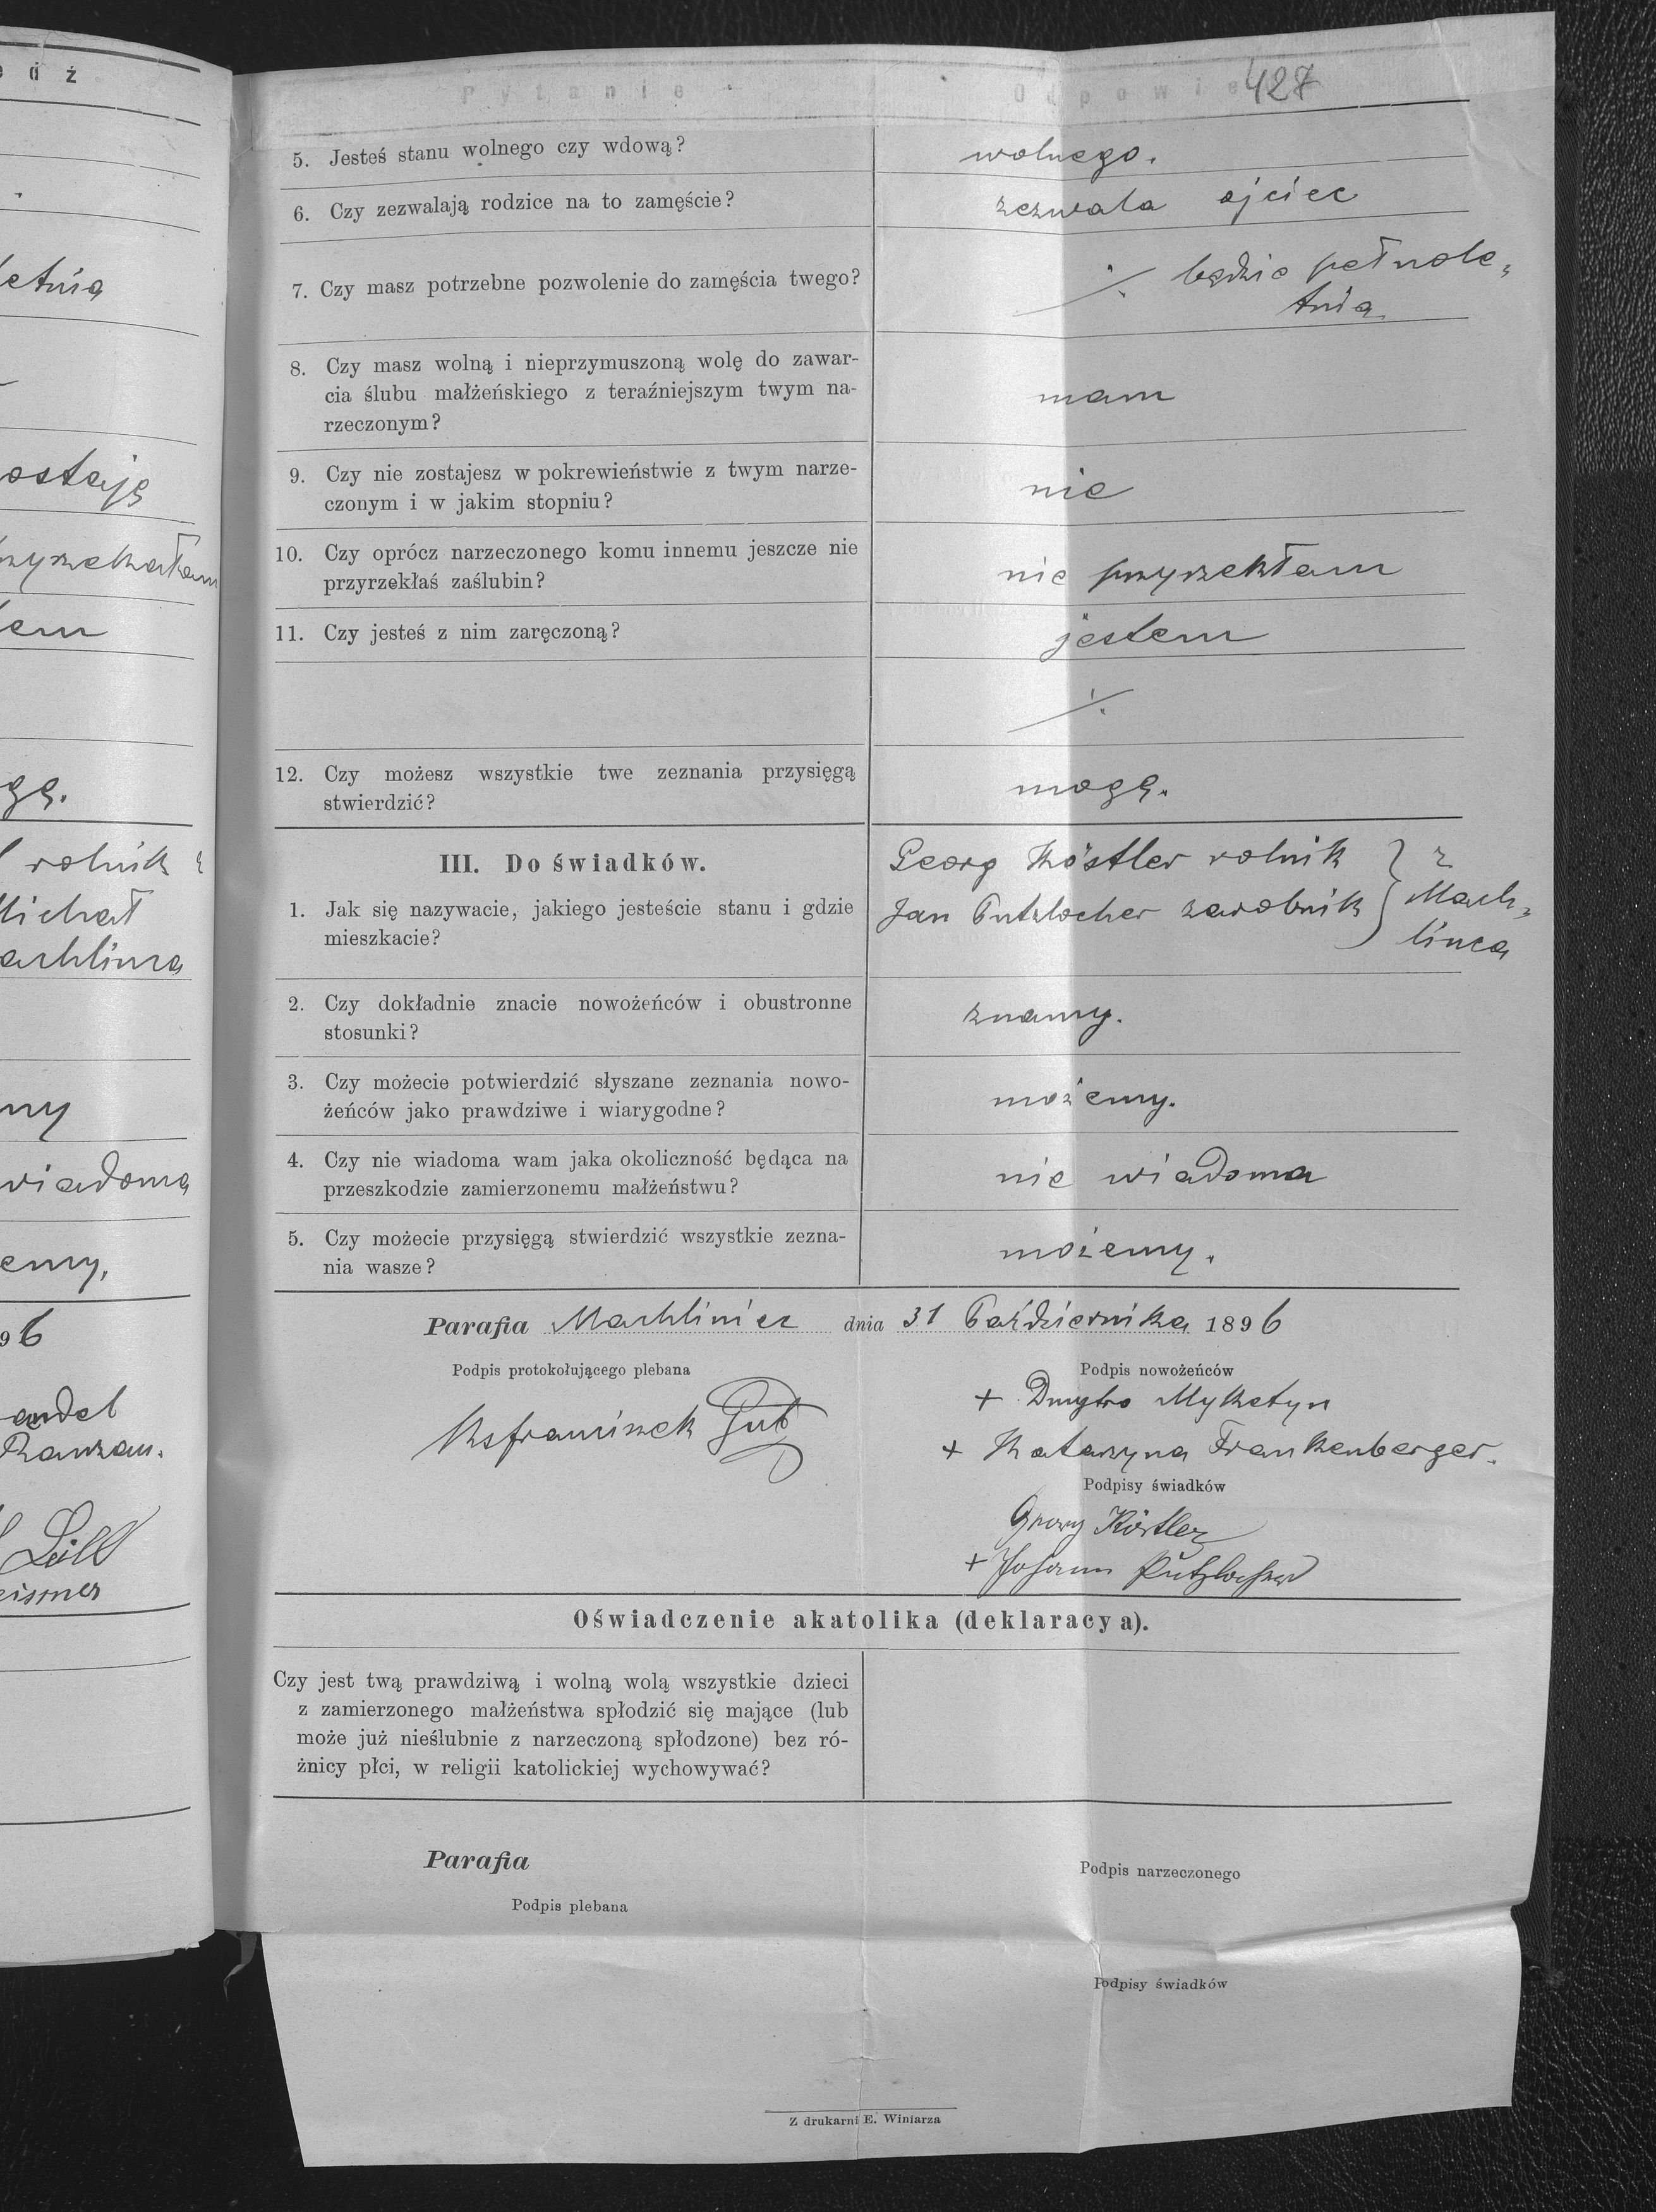 edź
etnia
ostają
em
gę.
rolnik z
Michał
achlinca
my
wiadoma
emy,
96
andel
Lill
427
Pytanie Odpowie
5. Jesteś stanu wolnego czy wdową? wolnego.
6. Czy zezwalają rodzice na to zamęście? zezwala ojciec
7. Czy masz potrzebne pozwolenie do zamęścia twego? ./. będzie pełnole-
tnia
8. Czy masz wolną i nieprzymuszoną wolę do zawar-
cia ślubu małżeńskiego z teraźniejszym twym na- mam
rzeczonym?
9. Czy nie zostajesz w pokrewieństwie z twym narze- nie
czonym i w jakim stopniu?
10. Czy oprócz narzeczonego komu innemu jeszcze nie nie przyrzekłam
przyrzekłaś zaślubin?
11. Czy jesteś z nim zaręczoną? jestem
./.
12. Czy możesz wszystkie twe zeznania przysięgą mogę.
stwierdzić?
III. Do świadków. Georg Köstler rolnik } z
1. Jak się nazywacie, jakiego jesteście stanu i gdzie Jan Putzlocher zarobnik } Mach-
mieszkacie? linca
2. Czy dokładnie znacie nowożeńców i obustronne znamy.
stosunki?
3. Czy możecie potwierdzić słyszane zeznania nowo- możemy.
żeńców jako prawdziwe i wiarygodne?
4. Czy nie wiadoma wam jaka okoliczność będąca na nie wiadoma
przeszkodzie zamierzonemu małżeństwu?
5. Czy możecie przysięgą stwierdzić wszystkie zezna- możemy.
nia wasze?
Parafia Machliniec dnia 31 Października 1896
Podpis protokołującego plebana Podpis nowożeńców
+ Dmytro Myketyn
Ks franciszek
+ Katarzyna Frankenberger.
Podpisy świadków
Georg Köstler
+ Johann Putzlocher
Oświadczenie akatolika (deklaracya).
Czy jest twą prawdziwą i wolną wolą wszystkie dzieci
z zamierzonego małżeństwa spłodzić się mające (lub
może już nieślubnie z narzeczoną spłodzone) bez ró-
żnicy płci, w religii katolickiej wychowywać?
Parafia
Podpis narzeczonego
Podpis plebana
Podpisy świadków
Z drukarni E. Winiarza